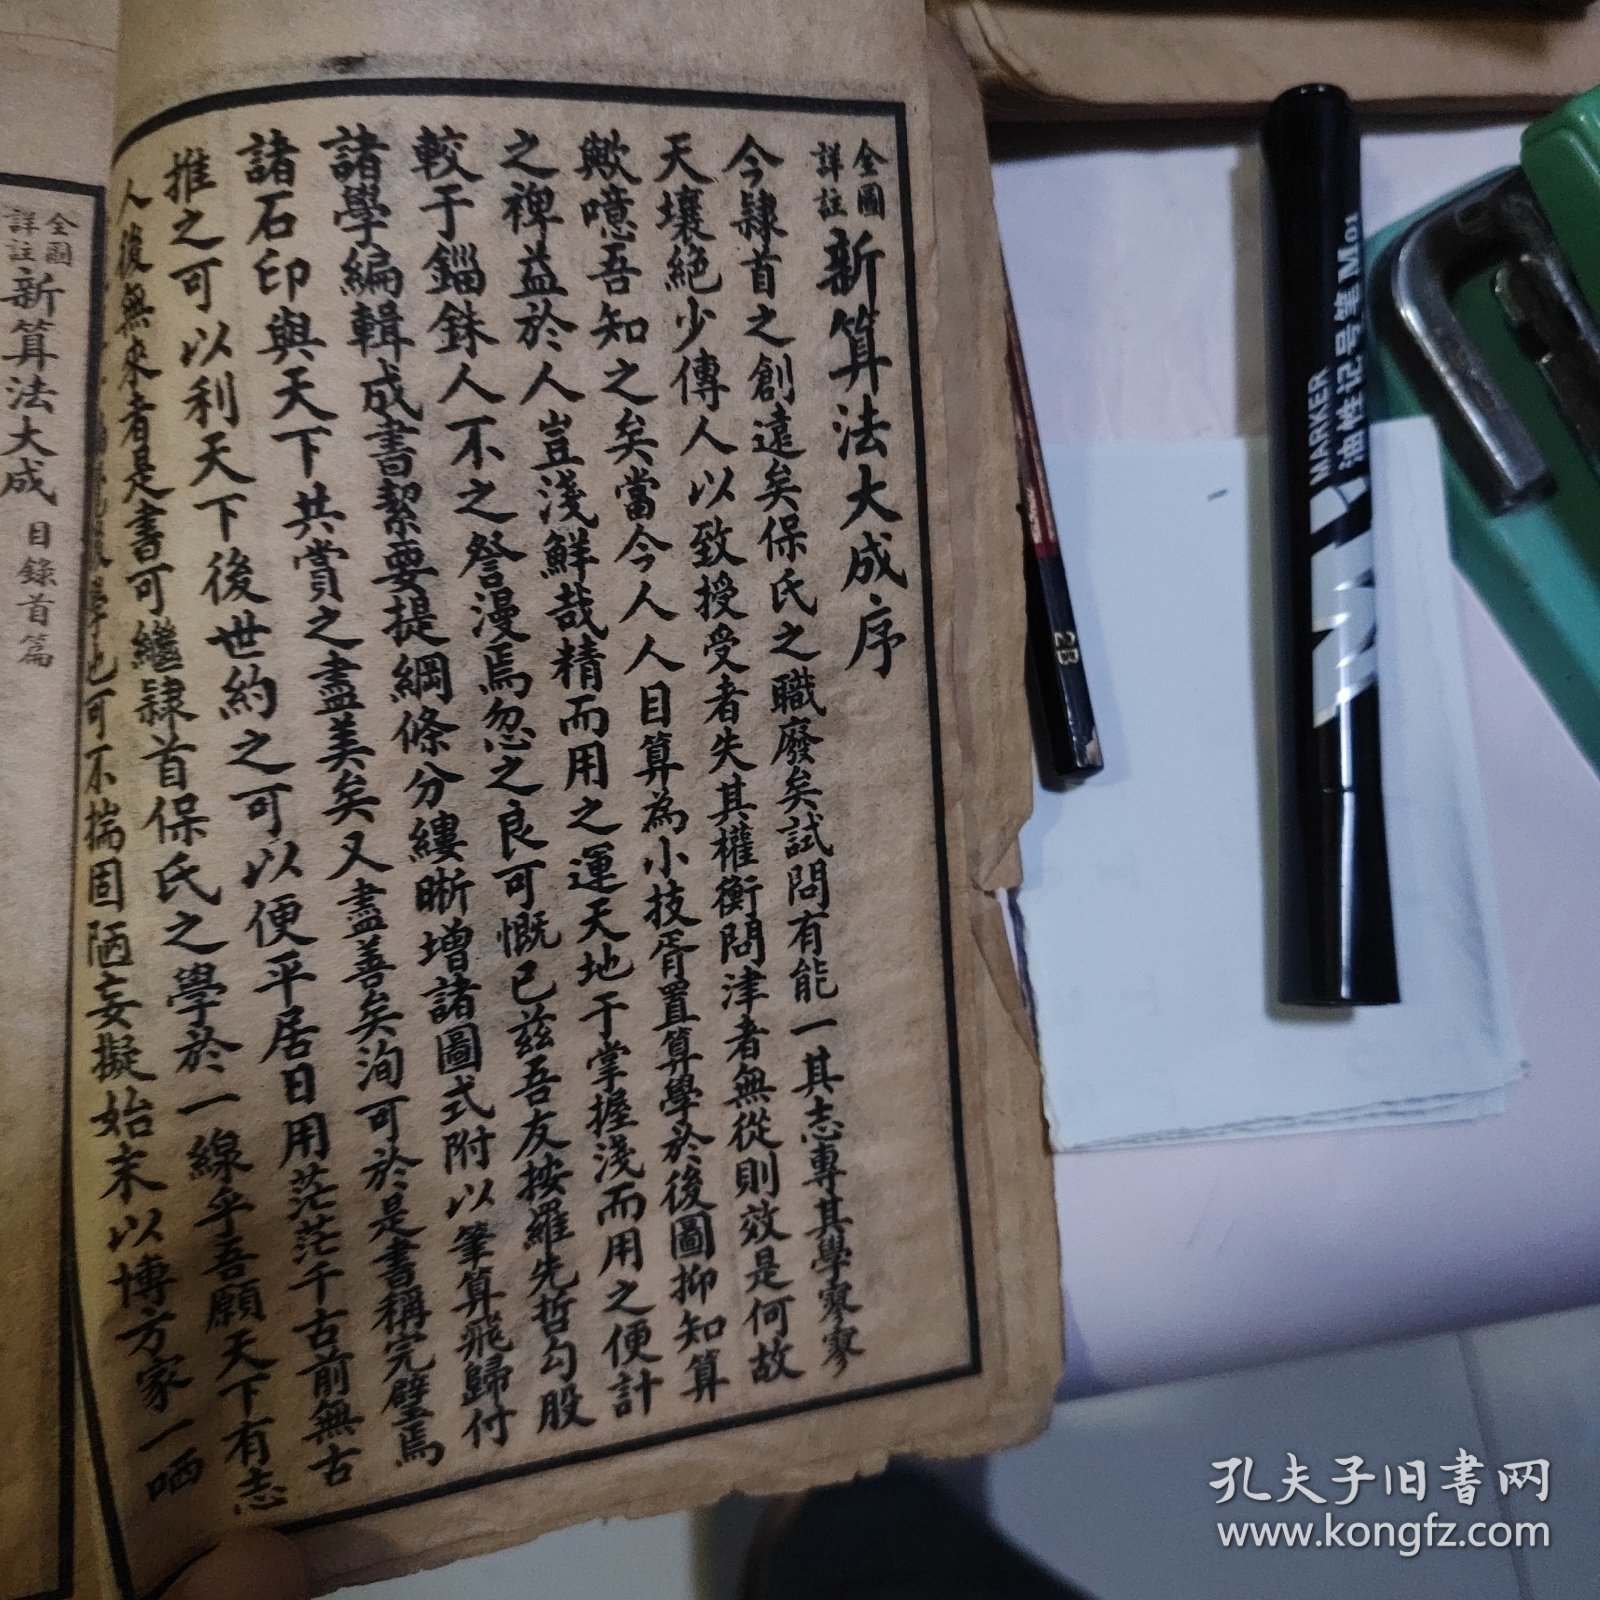 全圖詳註新算法大成序
今隸首之創遠矣保氏之職廢矣試問有能一其志專其學寥寥
天壤絕少傳人以致授受者失其權衡問津者無從則效是何故
歟噫吾知之矣當今人人目算為小技胥置算學於後圖抑知算
之裨益於人豈淺鮮哉精而用之運天地于掌握淺而用之便計
較于錙銖人不之詧漫焉忽之良可慨已茲吾友按羅先哲勾股
諸學編輯成書絜要提綱條分縷晰增諸圖式附以筆算飛歸付
諸石印與天下共賞之盡美矣又盡善矣洵可於是書稱完璧焉
推之可以利天下後世約之可以便平居日用茫茫千古前無古
人後無來者是書可繼隸首保氏之學於一線乎吾願天下有志
學也可不揣固陋妄擬始末以博方家一哂
全圖詳註新算法大成 目錄首篇
2B
MARKER
油性记号笔
孔夫子旧書网
www.kongfz.com